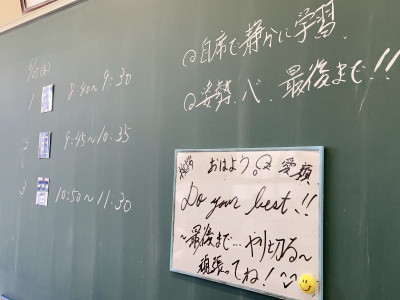 ◎自席で静かに学習.
◎姿勢、心、最後まで!!
1 8:40〜9:30
2 9:45〜10:35
3 10:50〜11:30
おはよう
Do your best!!
〜最後まで…やり切る〜
頑張ってね!